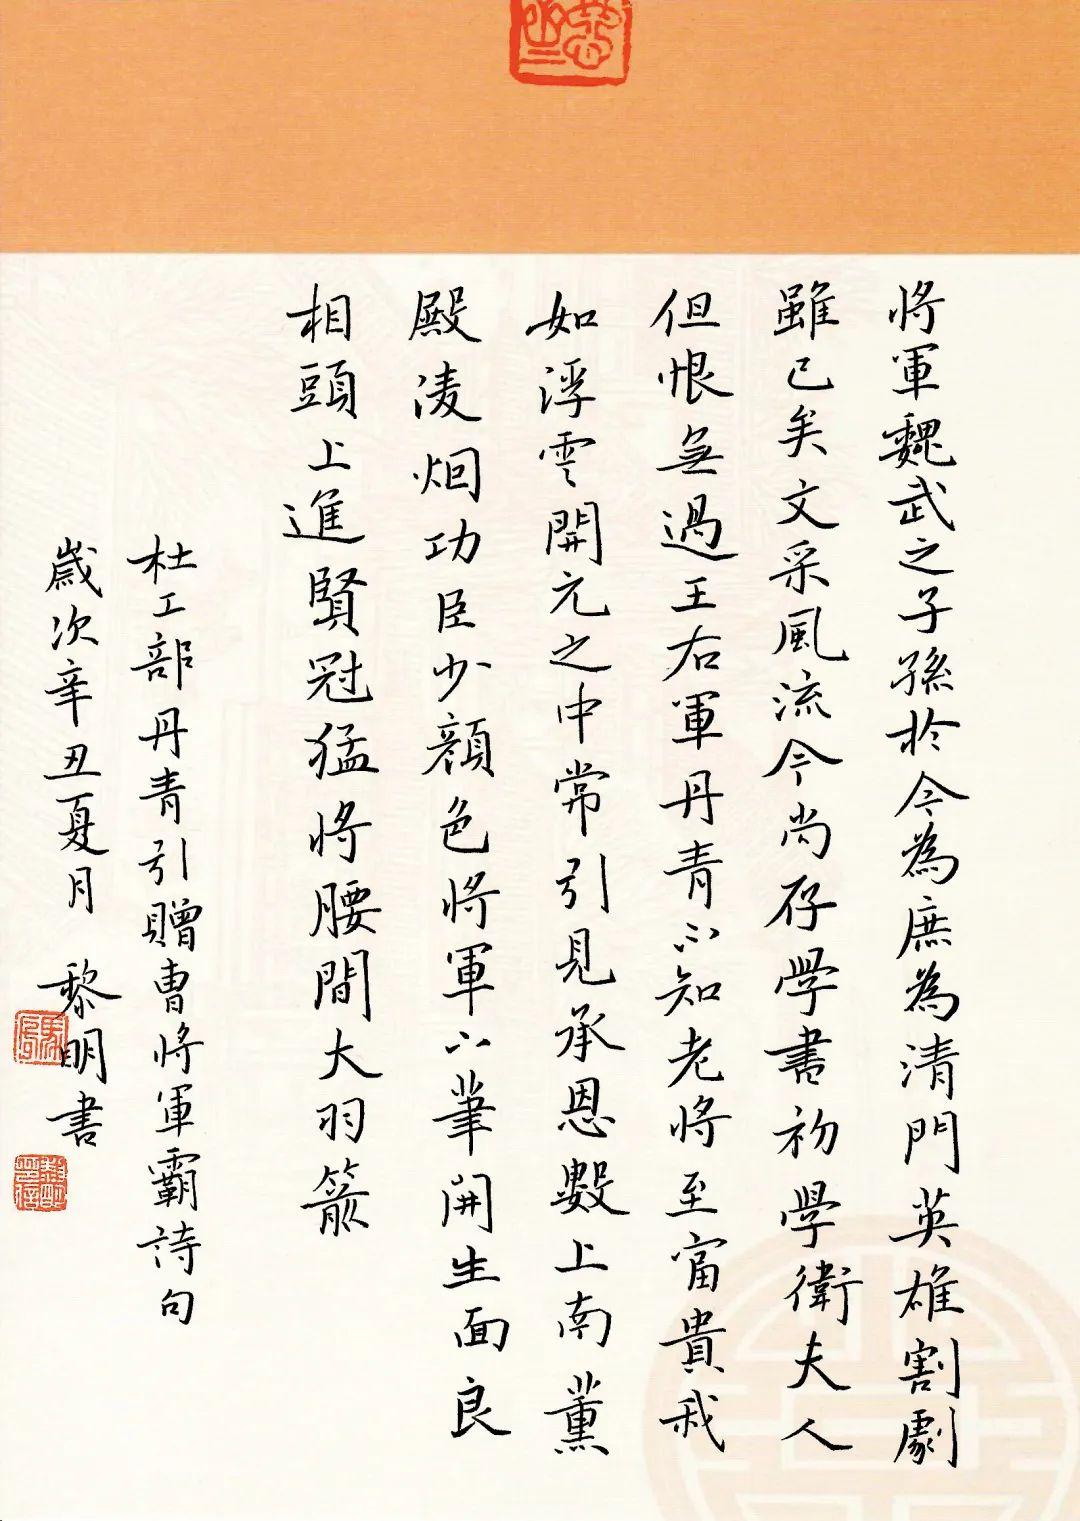 將軍魏武之子孫於今為庶為清門英雄割劇
雖已矣文采風流今尚存學書初學衛夫人
但恨無過王右軍丹青不知老將至富貴我
如浮雲開元之中常引見承恩數上南薰
殿凌烟功臣少顏色將軍下筆開生面良
相頭上進賢冠猛將腰間大羽箭
杜工部丹青引贈曹將軍霸詩句
歲次辛丑夏月 黎明書